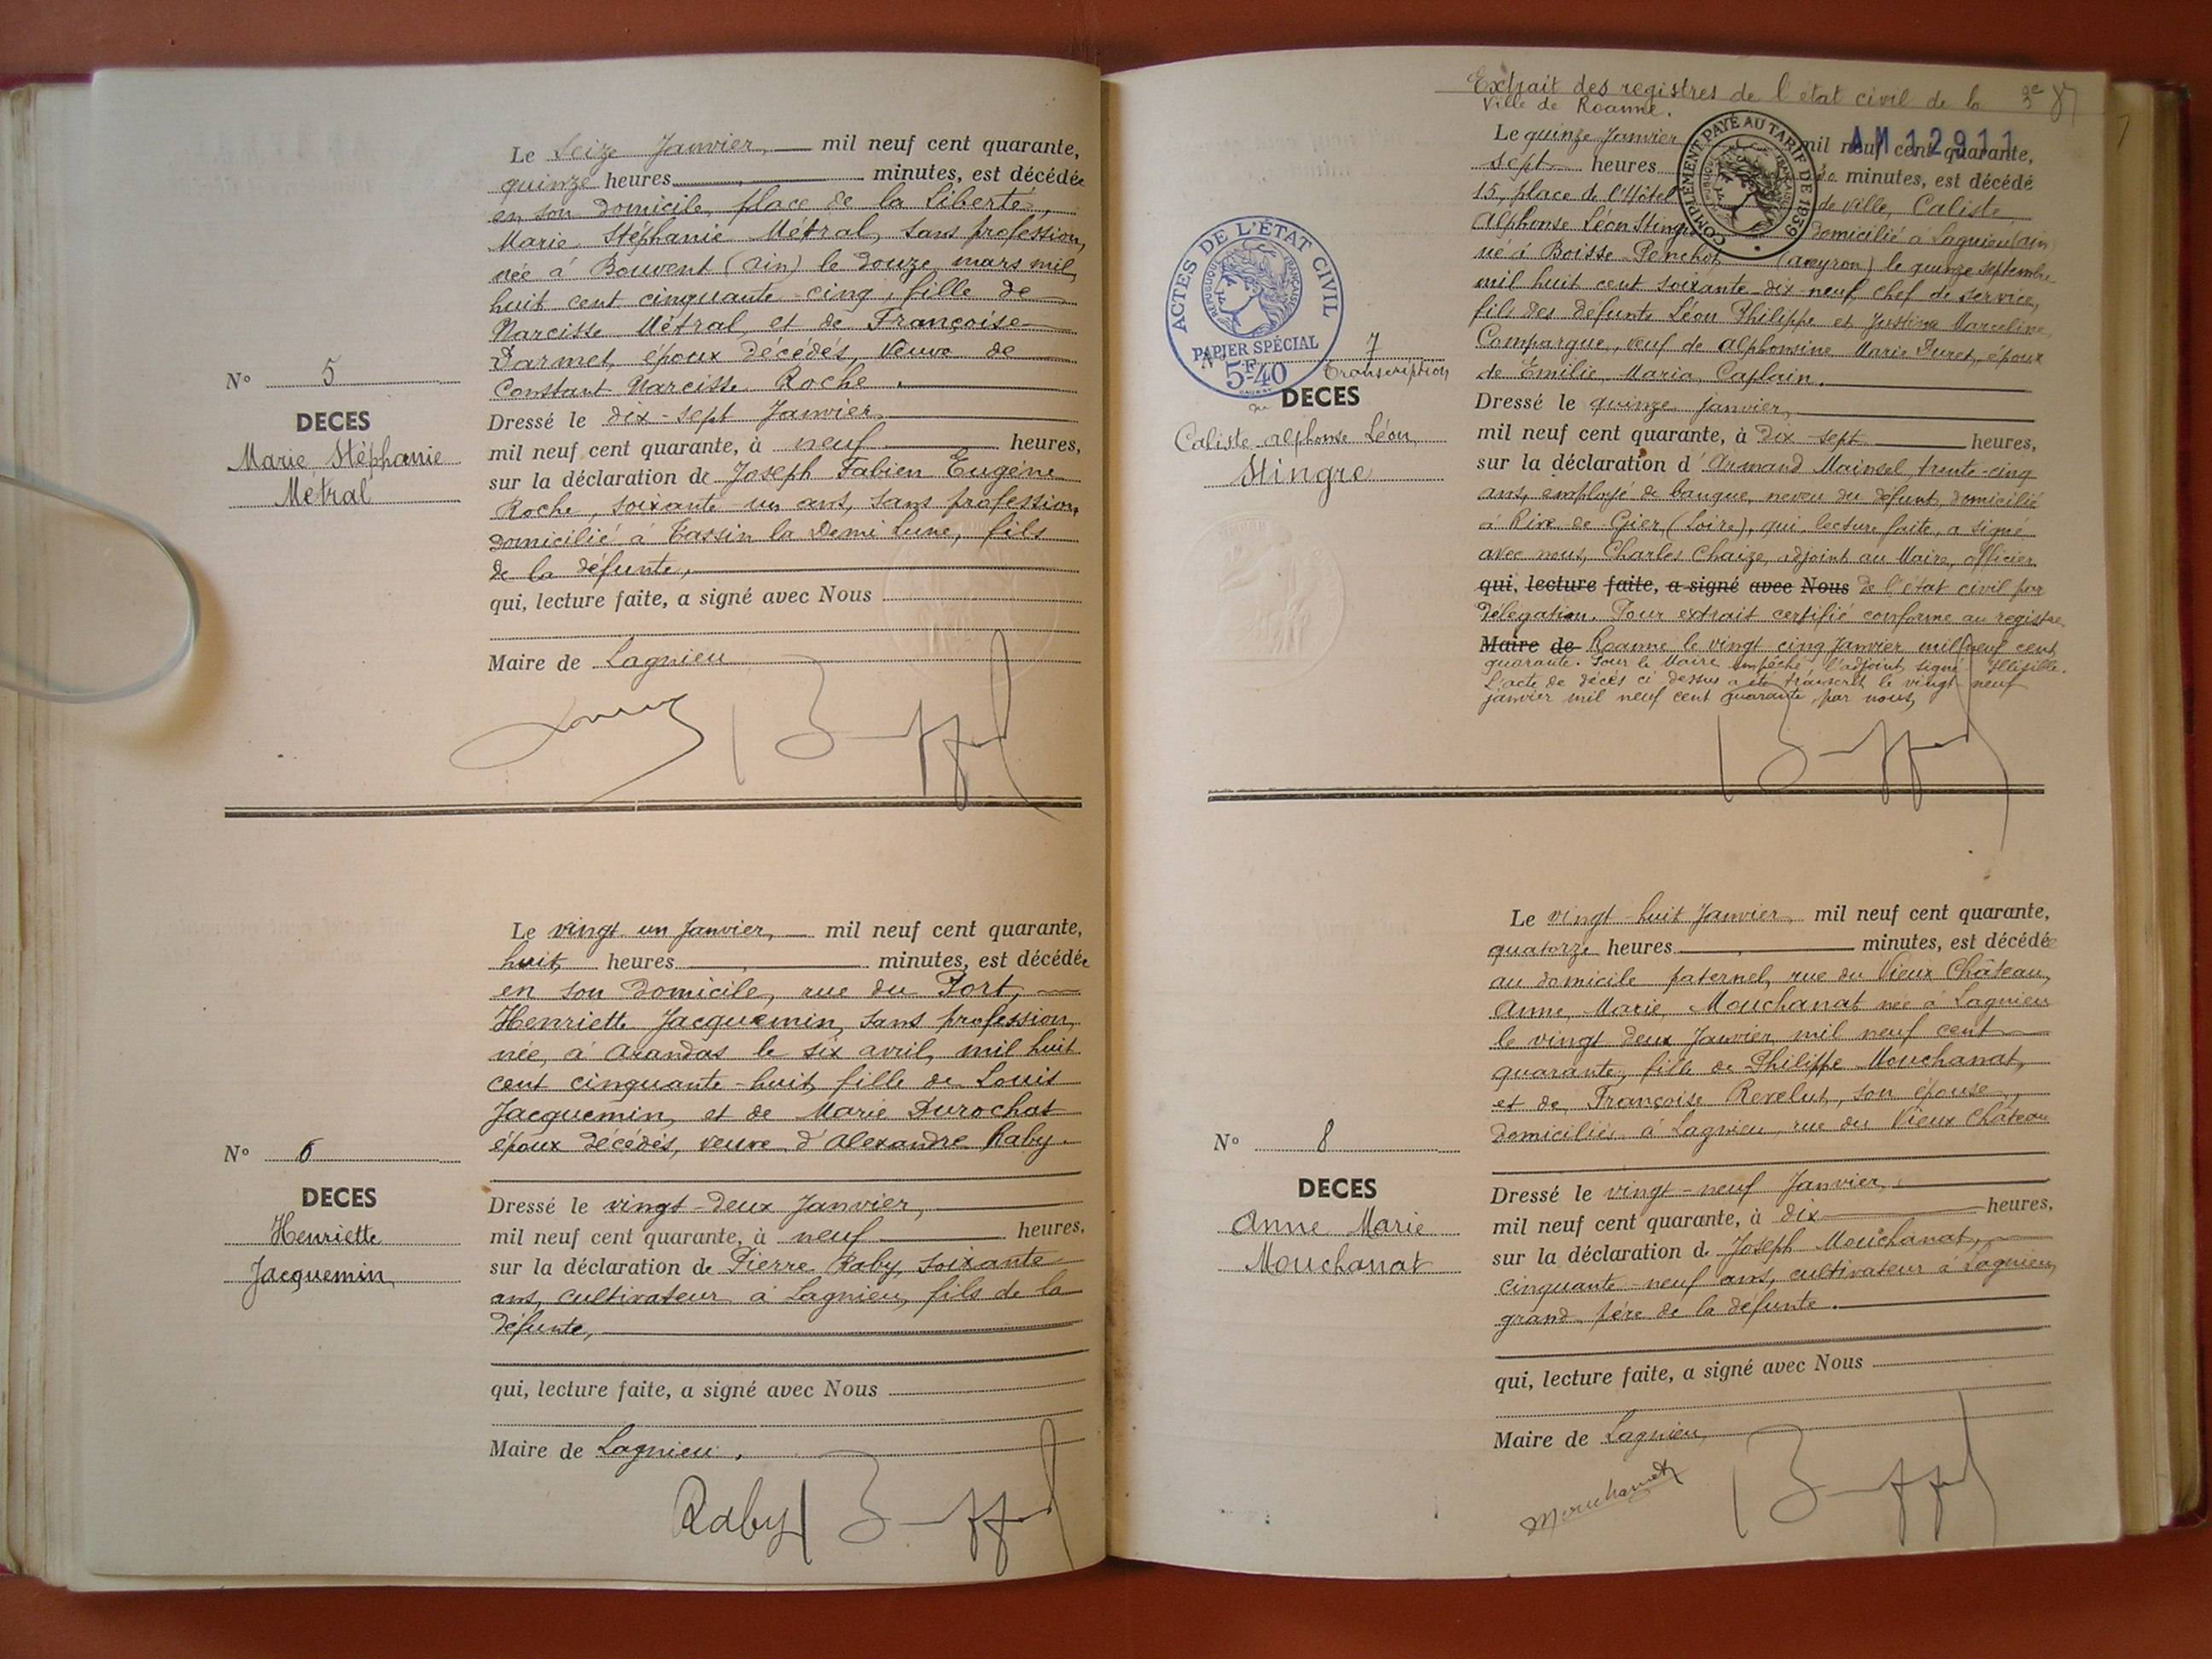 Le Seize Janvier, mil neuf cent quarante,
quinze heures minutes, est décédée
en son domicile, place de la Liberté,
Marie Stéphanie Métral, sans profession,
née à Bouvent (Ain) le douze mars mil
huit cent cinquante-cinq, fille de
Narcisse Métral, et de Françoise
Darmet, époux décédés, veuve de
Constant Narcisse Roche.
Dressé le dix-sept Janvier
mil neuf cent quarante, à neuf heures,
sur la déclaration de Joseph Fabien Eugène
Roche, soixante un ans, sans profession,
domicilié à Tassin la Demi Lune, fils
de la défunte,
qui, lecture faite, a signé avec Nous
Maire de Lagnieu
N° 5
DECES
Marie Stéphanie
Métral
Le vingt un Janvier, mil neuf cent quarante,
huit heures minutes, est décédée
en son domicile, rue du Port,
Henriette Jacquemin, sans profession,
née, à Arandas le six avril, mil huit
cent cinquante-huit, fille de Louis
Jacquemin, et de Marie Durochat
époux décédés, veuve d'Alexandre Raby.
N° 6
DECES
Henriette
Jacquemin,
Dressé le vingt-deux Janvier,
mil neuf cent quarante, à neuf heures,
sur la déclaration de Pierre Raby, soixante
ans, cultivateur à Lagnieu, fils de la
défunte,
qui, lecture faite, a signé avec Nous
Maire de Lagnieu.
Raby
Extrait des registres de l'état civil de la
Ville de Roanne.
Le quinze Janvier mil neuf cent quarante,
sept heures minutes, est décédé
15, place de l'Hôtel de ville, Caliste
Alphonse Léon Stingre domicilié à Lagnieu (ain)
né à Boisse-Penchot (aveyron) le quinze septembre
mil huit cent soixante-dix-neuf, chef de service,
fils des défunts Léon Philippe et Justine Marceline
Compargue, veuf de Alphonsine Marie Duret, époux
de Emilie, Maria, Caplain.
Dressé le quinze janvier,
mil neuf cent quarante, à dix-sept heures,
sur la déclaration d'Armand Mainsel, trente-cinq
ans, employé de banque, neveu du défunt, domicilié
à Rive de Gier (Loire), qui, lecture faite, a signé
avec nous, Charles Chaize, adjoint au Maire, officier
qui, lecture faite, a signé avec Nous de l'état civil par
délégation. Pour extrait certifié conforme au registre
Maire de Roanne le vingt cinq Janvier mil neuf cent
quarante. Pour le Maire empêché, l'adjoint, signé Illisible.
L'acte de décès ci dessus a été transcrit le vingt neuf
janvier mil neuf cent quarante, par nous,
COMPLÉMENT PAYÉ AU TARIF DE 1939
AM 12911
ACTES DE L'ÉTAT CIVIL
RÉPUBLIQUE FRANÇAISE
PAPIER SPÉCIAL
5F40
N° 7
transcription
DECES
Caliste Alphonse Léon
Stingre
Le vingt-huit Janvier, mil neuf cent quarante,
quatorze heures minutes, est décédée
au domicile paternel, rue du Vieux Château,
Anne, Marie, Mouchanat née à Lagnieu
le vingt deux Janvier, mil neuf cent
quarante, fille de Philippe Mouchanat,
et de Françoise Revelut, son épouse,
domiciliés à Lagnieu, rue du Vieux Château
N° 8
DECES
Anne Marie
Mouchanat
Dressé le vingt-neuf Janvier,
mil neuf cent quarante, à dix heures,
sur la déclaration de Joseph Mouchanat,
cinquante-neuf ans, cultivateur à Lagnieu,
grand-père de la défunte.
qui, lecture faite, a signé avec Nous
Maire de Lagnieu,